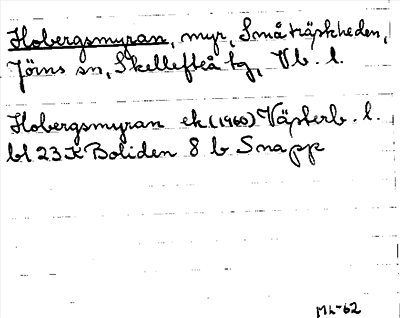 Hobergsmyran, myr, Småträskheden,
Jörns sn, Skellefteå tg, Vb. l.
Hobergsmyran ek (1960) Västerb. l.
bl 23 K Boliden 8 b Snapp
ML-62